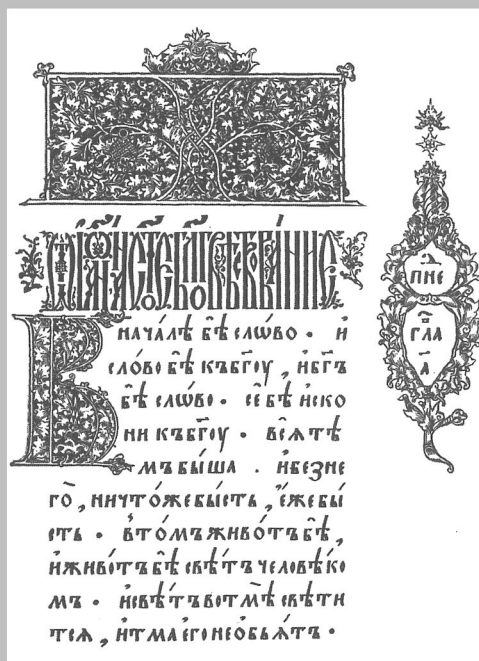 В начáлѣ бѣ слѡво · и҆
слóво бѣ къ бг҃ꙋ , и҆ бг҃ъ
бѣ слѡво · сé бѣ и҆ско
ни къ бг҃ꙋ · всѧ тѣ
мъ бы́ша . и҆ безне
гó , ничтóже бы́сть , є҆́же бы́
сть · в тóмъ живóтъ бѣ ,
и҆ живóтъ бѣ свѣ́тъ человѣ́ко
мъ · и҆ свѣ́тъ во тмѣ̀ свѣ́ти
тсѧ , и҆ тма є҆гó не ѻбьѧ́тъ ·
пне
гла
а҃